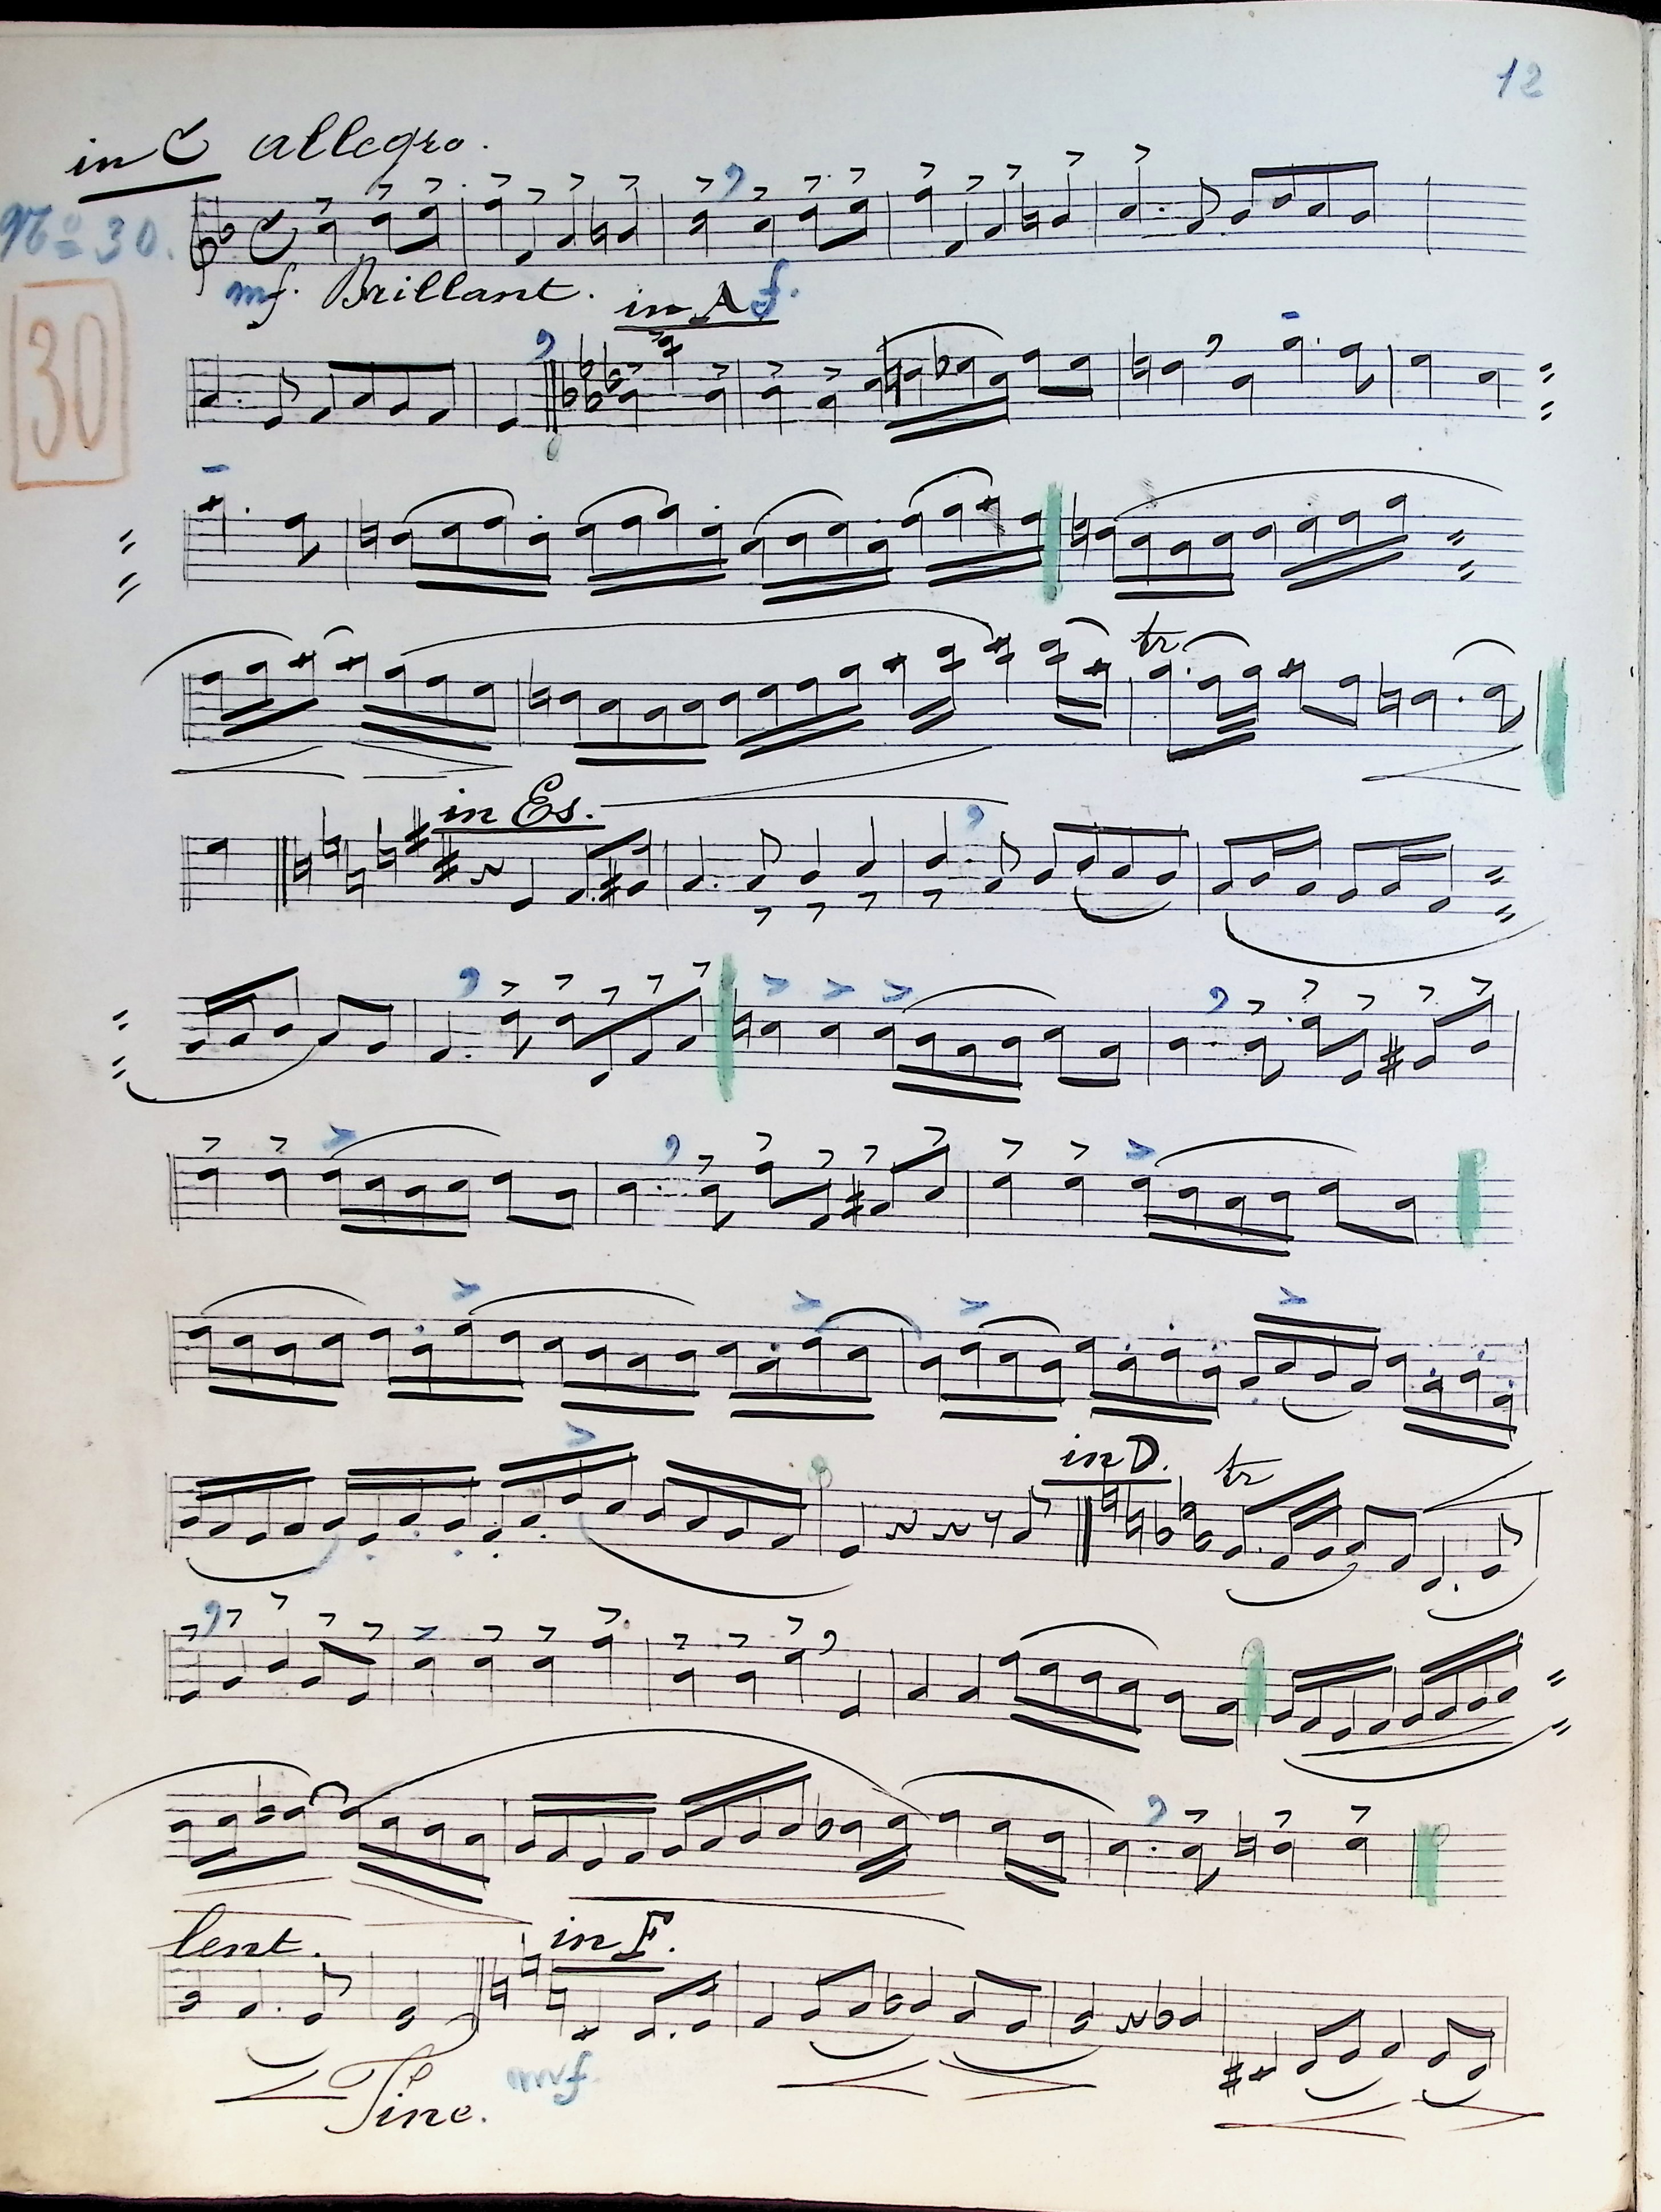 12
in C allegro.
No 30.
mf. Brillant.
in A f.
30
tr
in Es.
in D. tr
lent.
in F.
mf
Fine.